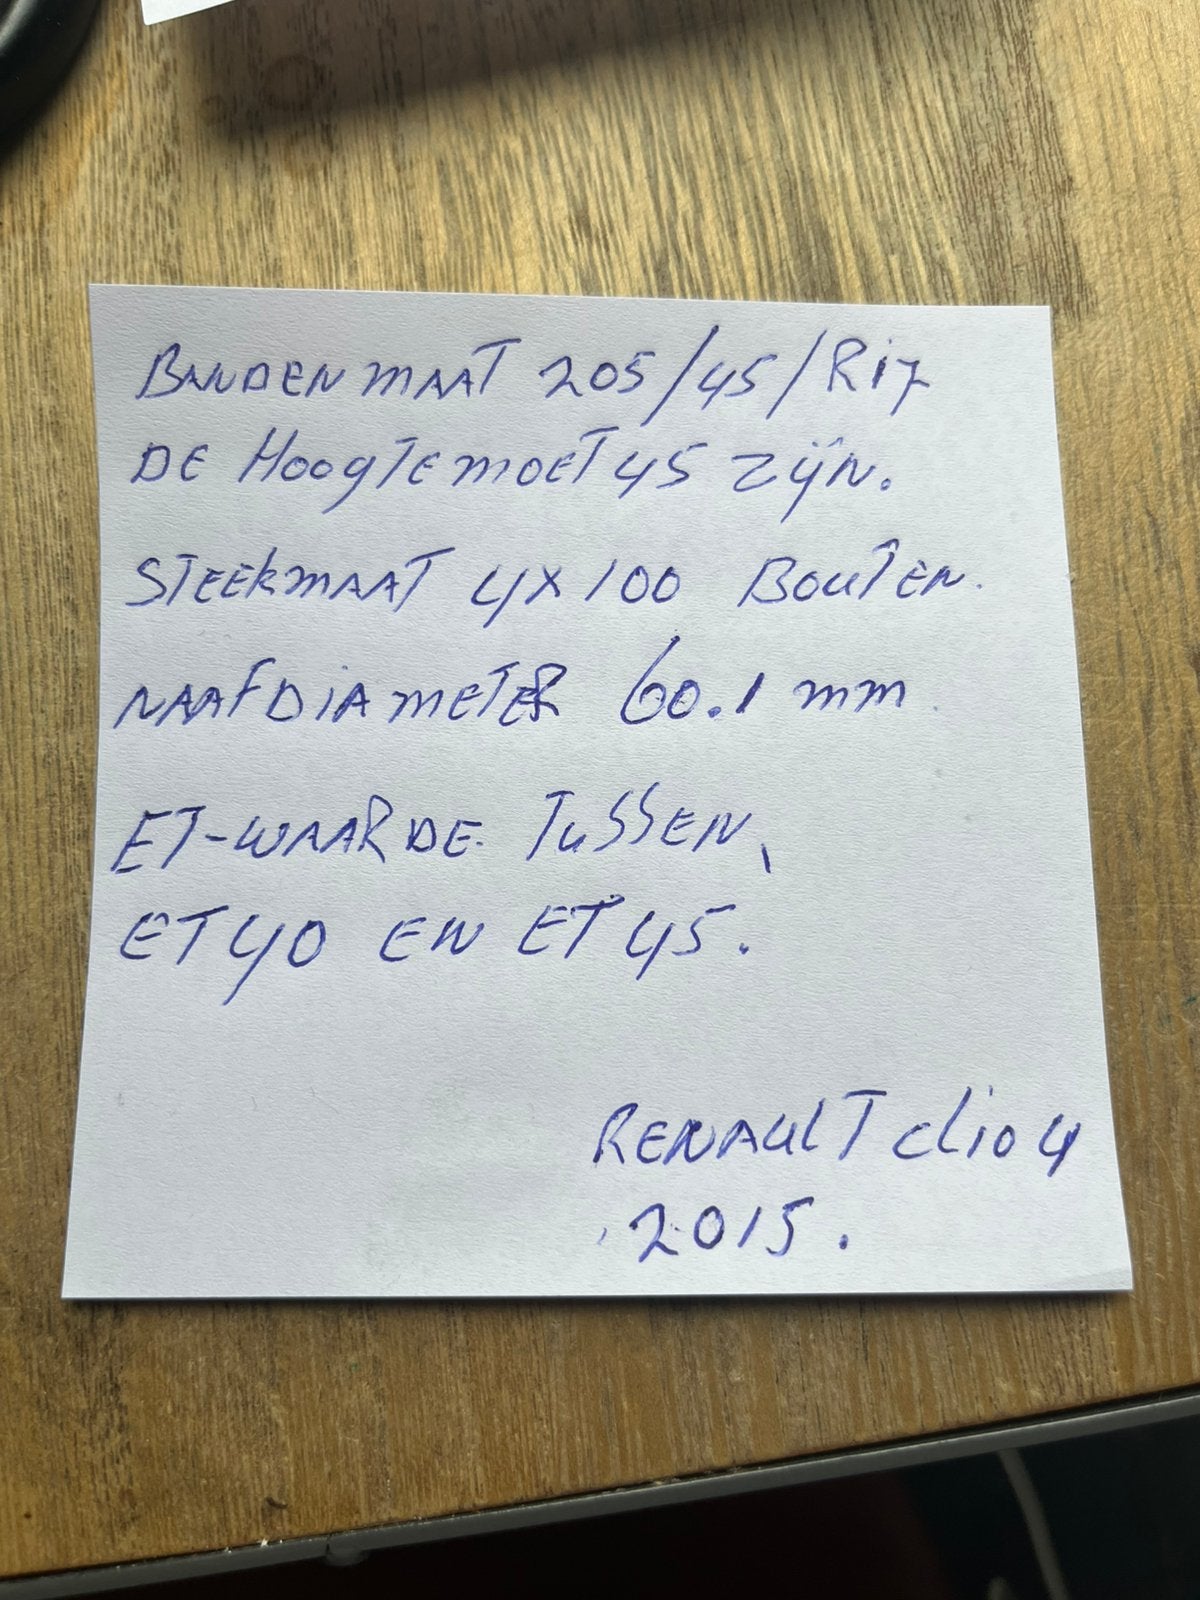 BANDENMAAT 205/45/R17
DE HOOGTE MOET 45 ZIJN.
STEEKMAAT 4X100 BOUTEN.
NAAFDIAMETER 60.1 mm
ET-WAARDE TUSSEN,
ET40 EN ET45.
RENAULT CLIO 4
2015.